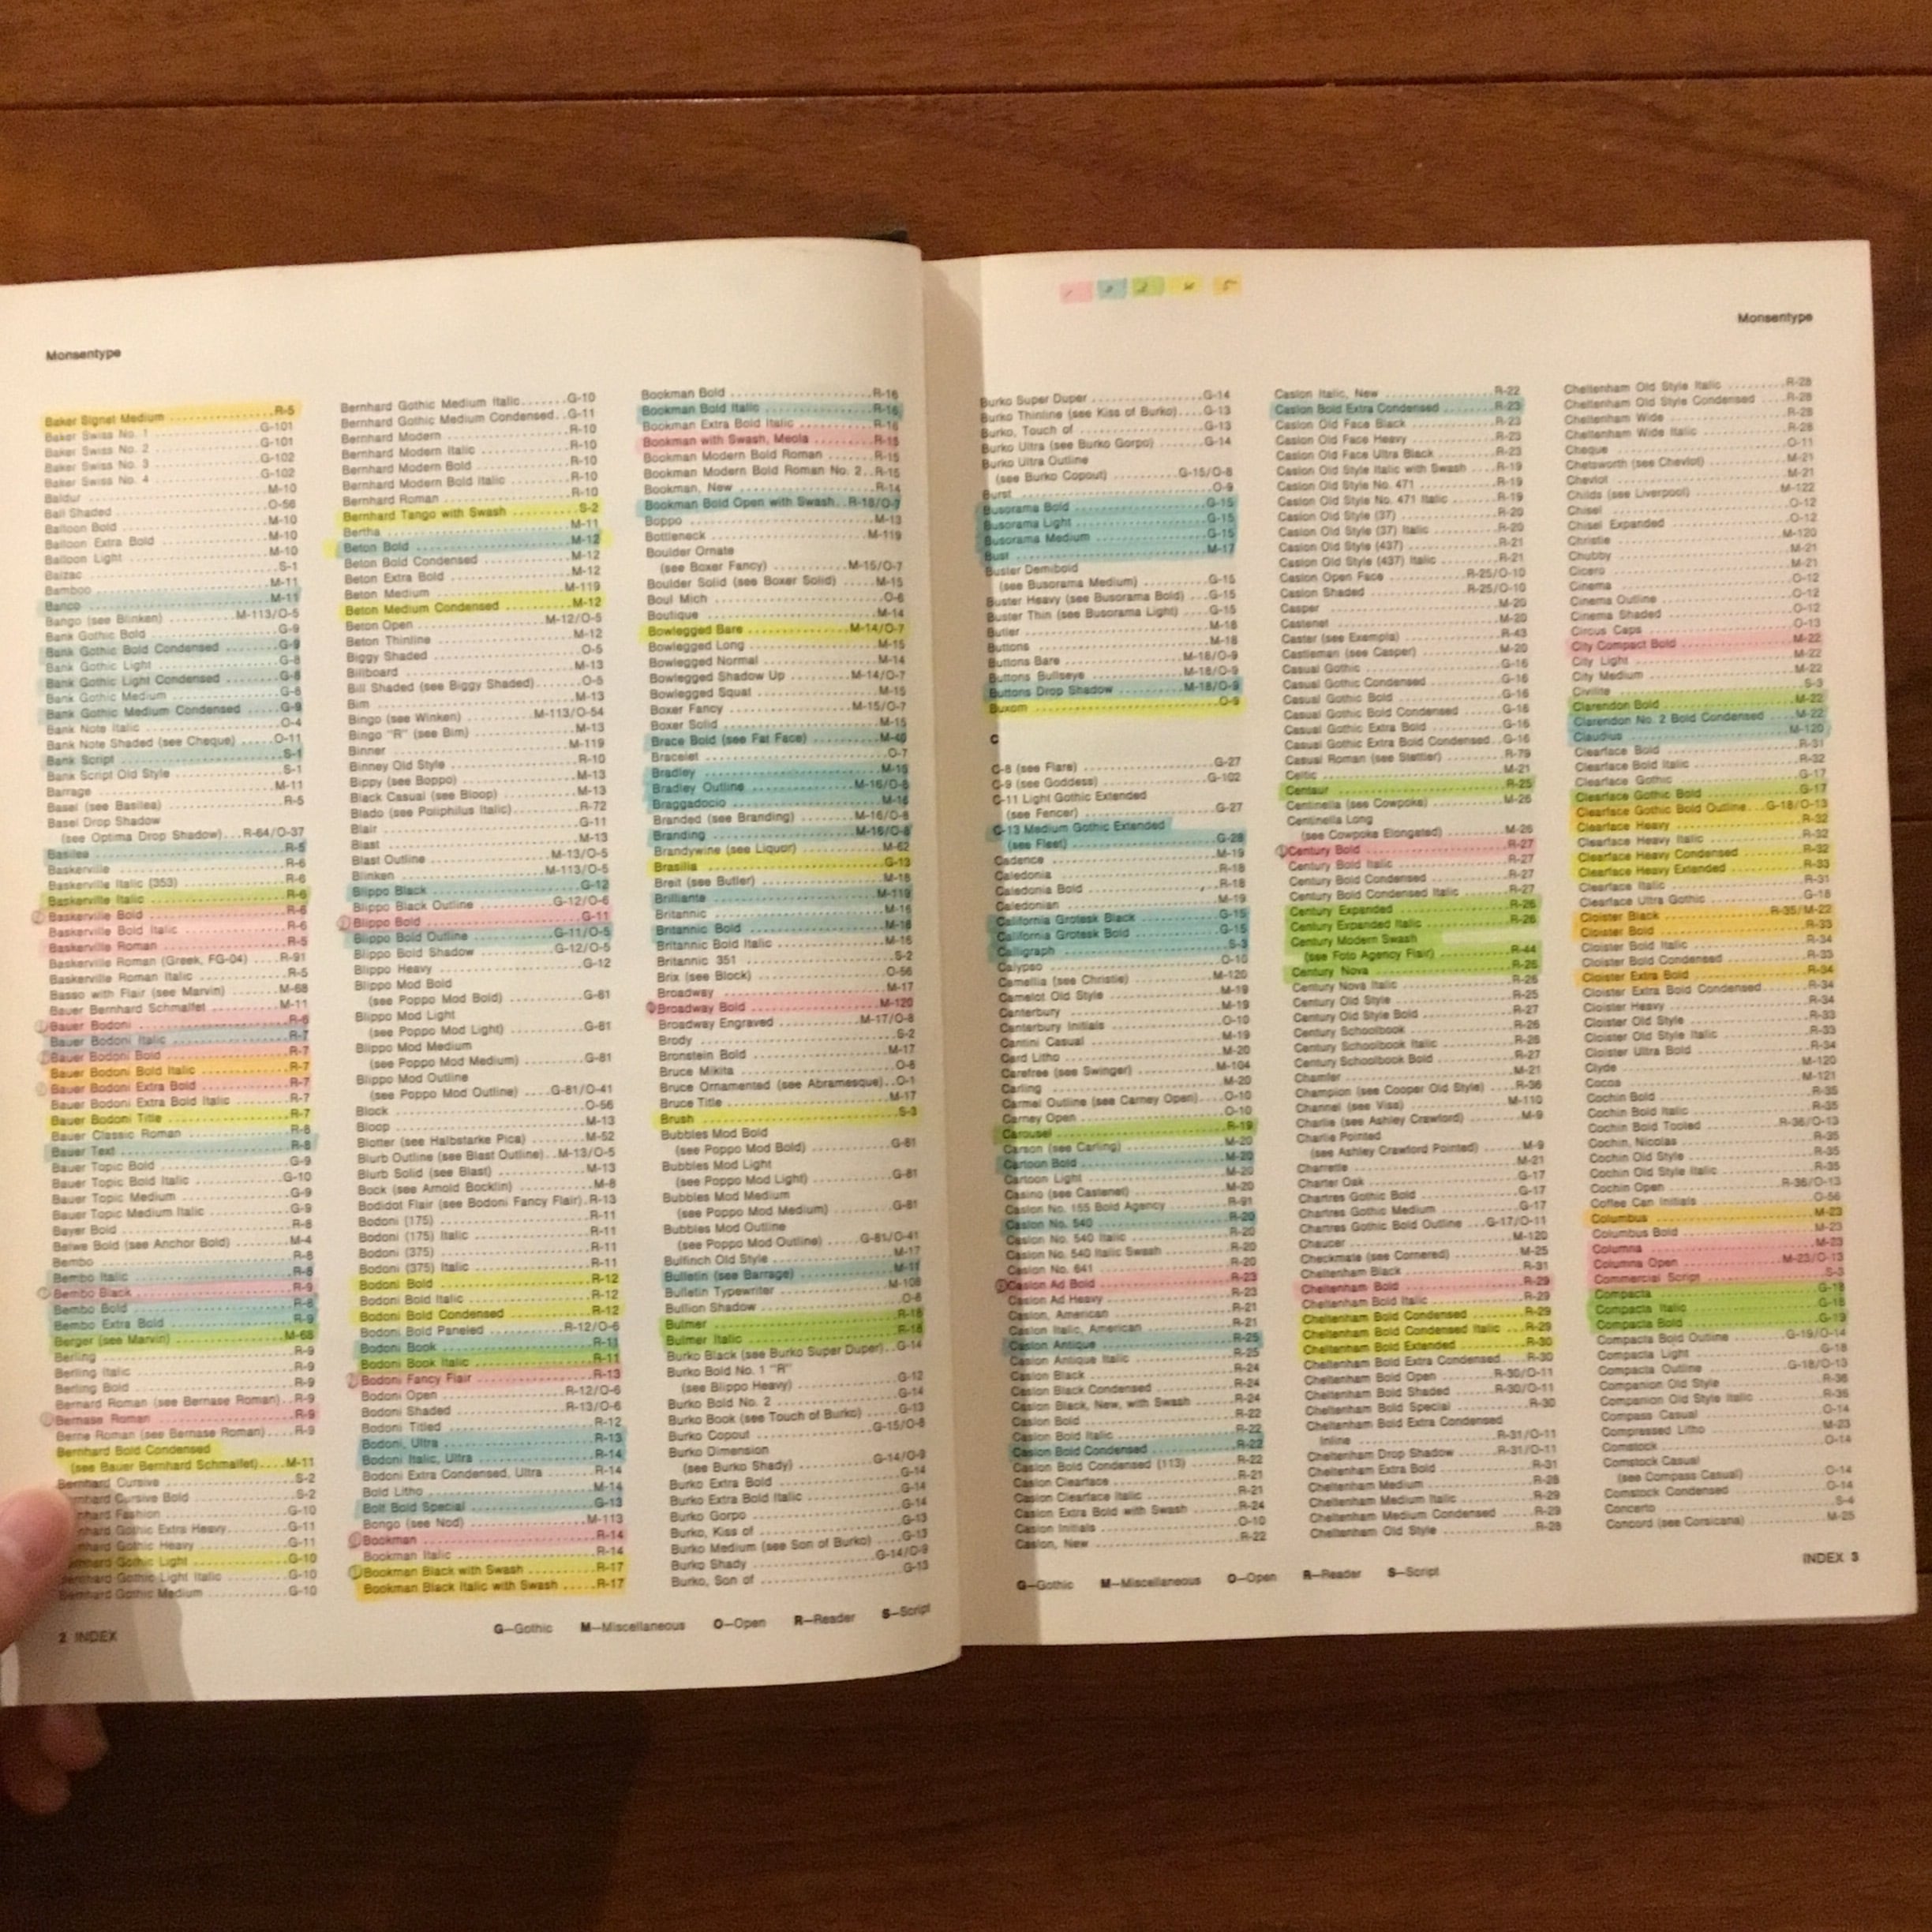 Monsentype
Baker Signet Medium ..... R-5
Baker Swiss No. 1 ..... G-101
Baker Swiss No. 2 ..... G-101
Baker Swiss No. 3 ..... G-102
Baker Swiss No. 4 ..... G-102
Baldur ..... M-10
Ball Shaded ..... O-56
Balloon Bold ..... M-10
Balloon Extra Bold ..... M-10
Balloon Light ..... M-10
Balzac ..... S-1
Bamboo ..... M-11
Banco ..... M-11
Bango (see Blinken) ..... M-113/O-5
Bank Gothic Bold ..... G-9
Bank Gothic Bold Condensed ..... G-9
Bank Gothic Light ..... G-8
Bank Gothic Light Condensed ..... G-8
Bank Gothic Medium ..... G-8
Bank Gothic Medium Condensed ..... G-9
Bank Note Italic ..... O-4
Bank Note Shaded (see Cheque) ..... O-11
Bank Script ..... S-1
Bank Script Old Style ..... S-1
Barrage ..... M-11
Basel (see Basilea) ..... R-5
Basel Drop Shadow
(see Optima Drop Shadow) ... R-64/O-37
Basilea ..... R-5
Baskerville ..... R-6
Baskerville Italic (353) ..... R-6
Baskerville Italic ..... R-6
Baskerville Bold ..... R-6
Baskerville Bold Italic ..... R-6
Baskerville Roman ..... R-5
Baskerville Roman (Greek, FG-04) ..... R-91
Baskerville Roman Italic ..... R-5
Basso with Flair (see Marvin) ..... M-68
Bauer Bernhard Schmalfet ..... M-11
Bauer Bodoni ..... R-6
Bauer Bodoni Italic ..... R-7
Bauer Bodoni Bold ..... R-7
Bauer Bodoni Bold Italic ..... R-7
Bauer Bodoni Extra Bold ..... R-7
Bauer Bodoni Extra Bold Italic ..... R-7
Bauer Bodoni Title ..... R-7
Bauer Classic Roman ..... R-8
Bauer Text ..... R-8
Bauer Topic Bold ..... G-9
Bauer Topic Bold Italic ..... G-10
Bauer Topic Medium ..... G-9
Bauer Topic Medium Italic ..... G-9
Beyer Bold ..... R-8
Belwe Bold (see Anchor Bold) ..... M-4
Bembo ..... R-8
Bembo Italic ..... R-8
Bembo Black ..... R-9
Bembo Bold ..... R-8
Bembo Extra Bold ..... R-9
Berger (see Marvin) ..... M-68
Berling ..... R-9
Berling Italic ..... R-9
Berling Bold ..... R-9
Bernard Roman (see Bernase Roman) .. R-9
Bernase Roman ..... R-9
Berne Roman (see Bernase Roman) ... R-9
Bernhard Bold Condensed
(see Bauer Bernhard Schmalfet) .... M-11
Bernhard Cursive ..... S-2
Cursive Bold ..... S-2
Fashion ..... G-10
Gothic Extra Heavy ..... G-11
Gothic Heavy ..... G-11
Gothic Light ..... G-10
Gothic Light Italic ..... G-10
Gothic Medium ..... G-10
Bernhard Gothic Medium Italic ..... G-10
Bernhard Gothic Medium Condensed .. G-11
Bernhard Modern ..... R-10
Bernhard Modern Italic ..... R-10
Bernhard Modern Bold ..... R-10
Bernhard Modern Bold Italic ..... R-10
Bernhard Roman ..... R-10
Bernhard Tango with Swash ..... S-2
Bertha ..... M-11
Beton Bold ..... M-12
Beton Bold Condensed ..... M-12
Beton Extra Bold ..... M-12
Beton Medium ..... M-119
Beton Medium Condensed ..... M-12
Beton Open ..... M-12/O-5
Beton Thinline ..... M-12
Biggy Shaded ..... O-5
Billboard ..... M-13
Bill Shaded (see Biggy Shaded) ..... O-5
Bim ..... M-13
Bingo (see Winken) ..... M-113/O-54
Bingo "R" (see Bim) ..... M-13
Binner ..... M-119
Binney Old Style ..... R-10
Bippy (see Boppo) ..... M-13
Black Casual (see Bloop) ..... M-13
Blado (see Poliphilus Italic) ..... R-72
Blair ..... G-11
Blast ..... M-13
Blast Outline ..... M-13/O-5
Blinken ..... M-113/O-5
Blippo Black ..... G-12
Blippo Black Outline ..... G-12/O-6
Blippo Bold ..... G-11
Blippo Bold Outline ..... G-11/O-5
Blippo Bold Shadow ..... G-12/O-5
Blippo Heavy ..... G-12
Blippo Mod Bold
(see Poppo Mod Bold) ..... G-81
Blippo Mod Light
(see Poppo Mod Light) ..... G-81
Blippo Mod Medium
(see Poppo Mod Medium) ..... G-81
Blippo Mod Outline
(see Poppo Mod Outline) .... G-81/O-41
Block ..... O-56
Bloop ..... M-13
Blotter (see Halbstarke Pica) ..... M-52
Blurb Outline (see Blast Outline) .. M-13/O-5
Blurb Solid (see Blast) ..... M-13
Bock (see Arnold Bocklin) ..... M-8
Bodidot Flair (see Bodoni Fancy Flair) . R-13
Bodoni (175) ..... R-11
Bodoni (175) Italic ..... R-11
Bodoni (375) ..... R-11
Bodoni (375) Italic ..... R-11
Bodoni Bold ..... R-12
Bodoni Bold Italic ..... R-12
Bodoni Bold Condensed ..... R-12
Bodoni Bold Paneled ..... R-12/O-6
Bodoni Book ..... R-11
Bodoni Book Italic ..... R-11
Bodoni Fancy Flair ..... R-13
Bodoni Open ..... R-12/O-6
Bodoni Shaded ..... R-13/O-6
Bodoni Titled ..... R-12
Bodoni, Ultra ..... R-13
Bodoni Italic, Ultra ..... R-14
Bodoni Extra Condensed, Ultra ..... R-14
Bold Litho ..... M-14
Bolt Bold Special ..... G-13
Bongo (see Nod) ..... M-113
Bookman ..... R-14
Bookman Italic ..... R-14
Bookman Black with Swash ..... R-17
Bookman Black Italic with Swash ..... R-17
Bookman Bold ..... R-16
Bookman Bold Italic ..... R-16
Bookman Extra Bold Italic ..... R-16
Bookman with Swash, Meola ..... R-15
Bookman Modern Bold Roman ..... R-15
Bookman Modern Bold Roman No. 2 .. R-15
Bookman, New ..... R-14
Bookman Bold Open with Swash .. R-18/O-7
Boppo ..... M-13
Bottleneck ..... M-119
Boulder Ornate
(see Boxer Fancy) ..... M-15/O-7
Boulder Solid (see Boxer Solid) ..... M-15
Boul Mich ..... O-6
Boutique ..... M-14
Bowlegged Bare ..... M-14/O-7
Bowlegged Long ..... M-15
Bowlegged Normal ..... M-14
Bowlegged Shadow Up ..... M-14/O-7
Bowlegged Squat ..... M-15
Boxer Fancy ..... M-15/O-7
Boxer Solid ..... M-15
Brace Bold (see Fat Face) ..... M-40
Bracelet ..... O-7
Bradley ..... M-15
Bradley Outline ..... M-16/O-8
Braggadocio ..... M-16
Branded (see Branding) ..... M-16/O-8
Branding ..... M-16/O-8
Brandywine (see Liquor) ..... M-62
Brasilia ..... G-13
Breit (see Butler) ..... M-18
Brilliante ..... M-119
Britannic ..... M-16
Britannic Bold ..... M-16
Britannic Bold Italic ..... M-16
Britannic 351 ..... S-2
Brix (see Block) ..... O-56
Broadway ..... M-17
Broadway Bold ..... M-120
Broadway Engraved ..... M-17/O-8
Brody ..... S-2
Bronstein Bold ..... M-17
Bruce Mikita ..... O-8
Bruce Ornamented (see Abramesque) .. O-1
Bruce Title ..... M-17
Brush ..... S-3
Bubbles Mod Bold
(see Poppo Mod Bold) ..... G-81
Bubbles Mod Light
(see Poppo Mod Light) ..... G-81
Bubbles Mod Medium
(see Poppo Mod Medium) ..... G-81
Bubbles Mod Outline
(see Poppo Mod Outline) ..... G-81/O-41
Bulfinch Old Style ..... M-17
Bulletin (see Barrage) ..... M-11
Bulletin Typewriter ..... M-108
Bullion Shadow ..... O-8
Bulmer ..... R-18
Bulmer Italic ..... R-18
Burko Black (see Burko Super Duper) .. G-14
Burko Bold No. 1 "R"
(see Blippo Heavy) ..... G-12
Burko Bold No. 2 ..... G-14
Burko Book (see Touch of Burko) ..... G-13
Burko Copout ..... G-15/O-8
Burko Dimension
(see Burko Shady) ..... G-14/O-9
Burko Extra Bold ..... G-14
Burko Extra Bold Italic ..... G-14
Burko Gorpo ..... G-14
Burko, Kiss of ..... G-13
Burko Medium (see Son of Burko) ..... G-13
Burko Shady ..... G-14/O-9
Burko, Son of ..... G-13
G—Gothic M—Miscellaneous O—Open R—Reader S—Script
2 INDEX
1 2 3 4 5
Monsentype
Burko Super Duper ..... G-14
Burko Thinline (see Kiss of Burko) ..... G-13
Burko, Touch of ..... G-13
Burko Ultra (see Burko Gorpo) ..... G-14
Burko Ultra Outline
(see Burko Copout) ..... G-15/O-8
Burst ..... O-9
Busorama Bold ..... G-15
Busorama Light ..... G-15
Busorama Medium ..... G-15
Bust ..... M-17
Buster Demibold
(see Busorama Medium) ..... G-15
Buster Heavy (see Busorama Bold) ... G-15
Buster Thin (see Busorama Light) ..... G-15
Butler ..... M-18
Buttons ..... M-18
Buttons Bare ..... M-18/O-9
Buttons Bullseye ..... M-18/O-9
Buttons Drop Shadow ..... M-18/O-9
Buxom ..... O-9
C
C-8 (see Flara) ..... G-27
C-9 (see Goddess) ..... G-102
C-11 Light Gothic Extended
(see Fencer) ..... G-27
C-13 Medium Gothic Extended
(see Fleet) ..... G-28
Cadence ..... M-19
Caledonia ..... R-18
Caledonia Bold ..... R-18
Caledonian ..... M-19
California Grotesk Black ..... G-15
California Grotesk Bold ..... G-15
Calligraph ..... S-3
Calypso ..... O-10
Camellia (see Christie) ..... M-120
Camelot Old Style ..... M-19
Canterbury ..... M-19
Canterbury Initials ..... O-10
Cantini Casual ..... M-19
Card Litho ..... M-20
Carefree (see Swinger) ..... M-104
Carling ..... M-20
Carmel Outline (see Carney Open) .... O-10
Carney Open ..... O-10
Carousel ..... R-19
Carson (see Carling) ..... M-20
Cartoon Bold ..... M-20
Cartoon Light ..... M-20
Casino (see Castenet) ..... M-20
Caslon No. 155 Bold Agency ..... R-91
Caslon No. 540 ..... R-20
Caslon No. 540 Italic ..... R-20
Caslon No. 540 Italic Swash ..... R-20
Caslon No. 641 ..... R-20
Caslon Ad Bold ..... R-23
Caslon Ad Heavy ..... R-23
Caslon, American ..... R-21
Caslon Italic, American ..... R-21
Caslon Antique ..... R-25
Caslon Antique Italic ..... R-25
Caslon Black ..... R-24
Caslon Black Condensed ..... R-24
Caslon Black, New, with Swash ..... R-24
Caslon Bold ..... R-22
Caslon Bold Italic ..... R-22
Caslon Bold Condensed ..... R-22
Caslon Bold Condensed (113) ..... R-22
Caslon Clearface ..... R-21
Caslon Clearface Italic ..... R-21
Caslon Extra Bold with Swash ..... R-24
Caslon Initials ..... O-10
Caslon, New ..... R-22
Caslon Italic, New ..... R-22
Caslon Bold Extra Condensed ..... R-23
Caslon Old Face Black ..... R-23
Caslon Old Face Heavy ..... R-23
Caslon Old Face Ultra Black ..... R-23
Caslon Old Style Italic with Swash ..... R-19
Caslon Old Style No. 471 ..... R-19
Caslon Old Style No. 471 Italic ..... R-19
Caslon Old Style (37) ..... R-20
Caslon Old Style (37) Italic ..... R-20
Caslon Old Style (437) ..... R-21
Caslon Old Style (437) Italic ..... R-21
Caslon Open Face ..... R-25/O-10
Caslon Shaded ..... R-25/O-10
Casper ..... M-20
Castenet ..... M-20
Caster (see Exempla) ..... R-43
Castleman (see Casper) ..... M-20
Casual Gothic ..... G-16
Casual Gothic Condensed ..... G-16
Casual Gothic Bold ..... G-16
Casual Gothic Bold Condensed ..... G-16
Casual Gothic Extra Bold ..... G-16
Casual Gothic Extra Bold Condensed .. G-16
Casual Roman (see Stettler) ..... R-79
Celtic ..... M-21
Centaur ..... R-25
Centinella (see Cowpoke) ..... M-26
Centinella Long
(see Cowpoke Elongated) ..... M-26
Century Bold ..... R-27
Century Bold Italic ..... R-27
Century Bold Condensed ..... R-27
Century Bold Condensed Italic ..... R-27
Century Expanded ..... R-26
Century Expanded Italic ..... R-26
Century Modern Swash
(see Foto Agency Flair) ..... R-44
Century Nova ..... R-26
Century Nova Italic ..... R-26
Century Old Style ..... R-25
Century Old Style Bold ..... R-27
Century Schoolbook ..... R-26
Century Schoolbook Italic ..... R-26
Century Schoolbook Bold ..... R-27
Chamfer ..... M-21
Champion (see Cooper Old Style) ..... R-36
Channel (see Visa) ..... M-110
Charlie (see Ashley Crawford) ..... M-9
Charlie Pointed
(see Ashley Crawford Pointed) ..... M-9
Charrette ..... M-21
Charter Oak ..... G-17
Chartres Gothic Bold ..... G-17
Chartres Gothic Medium ..... G-17
Chartres Gothic Bold Outline ... G-17/O-11
Chaucer ..... M-120
Checkmate (see Cornered) ..... M-25
Cheltenham Black ..... R-31
Cheltenham Bold ..... R-29
Cheltenham Bold Italic ..... R-29
Cheltenham Bold Condensed ..... R-29
Cheltenham Bold Condensed Italic ... R-29
Cheltenham Bold Extended ..... R-30
Cheltenham Bold Extra Condensed ... R-30
Cheltenham Bold Open ..... R-30/O-11
Cheltenham Bold Shaded ..... R-30/O-11
Cheltenham Bold Special ..... R-30
Cheltenham Bold Extra Condensed
Inline ..... R-31/O-11
Cheltenham Drop Shadow ..... R-31/O-11
Cheltenham Extra Bold ..... R-31
Cheltenham Medium ..... R-28
Cheltenham Medium Italic ..... R-29
Cheltenham Medium Condensed ..... R-29
Cheltenham Old Style ..... R-28
Cheltenham Old Style Italic ..... R-28
Cheltenham Old Style Condensed ..... R-28
Cheltenham Wide ..... R-28
Cheltenham Wide Italic ..... R-28
Cheque ..... O-11
Chetsworth (see Cheviot) ..... M-21
Cheviot ..... M-21
Childs (see Liverpool) ..... M-122
Chisel ..... O-12
Chisel Expanded ..... O-12
Christie ..... M-120
Chubby ..... M-21
Cicero ..... M-21
Cinema ..... O-12
Cinema Outline ..... O-12
Cinema Shaded ..... O-12
Circus Caps ..... O-13
City Compact Bold ..... M-22
City Light ..... M-22
City Medium ..... M-22
Civilite ..... S-3
Clarendon Bold ..... M-22
Clarendon No. 2 Bold Condensed ..... M-22
Claudius ..... M-120
Clearface Bold ..... R-31
Clearface Bold Italic ..... R-32
Clearface Gothic ..... G-17
Clearface Gothic Bold ..... G-17
Clearface Gothic Bold Outline ... G-18/O-13
Clearface Heavy ..... R-32
Clearface Heavy Italic ..... R-32
Clearface Heavy Condensed ..... R-32
Clearface Heavy Extended ..... R-33
Clearface Italic ..... R-31
Clearface Ultra Gothic ..... G-18
Cloister Black ..... R-35/M-22
Cloister Bold ..... R-33
Cloister Bold Italic ..... R-34
Cloister Bold Condensed ..... R-35
Cloister Extra Bold ..... R-34
Cloister Extra Bold Condensed ..... R-34
Cloister Heavy ..... R-34
Cloister Old Style ..... R-33
Cloister Old Style Italic ..... R-33
Cloister Ultra Bold ..... R-34
Clyde ..... M-120
Cocoa ..... M-121
Cochin Bold ..... R-35
Cochin Bold Italic ..... R-35
Cochin Bold Tooled ..... R-36/O-13
Cochin, Nicolas ..... R-35
Cochin Old Style ..... R-35
Cochin Old Style Italic ..... R-35
Cochin Open ..... R-36/O-13
Coffee Can Initials ..... O-56
Columbus ..... M-23
Columbus Bold ..... M-23
Columna ..... M-23
Columna Open ..... M-23/O-13
Commercial Script ..... S-3
Compacta ..... G-18
Compacta Italic ..... G-18
Compacta Bold ..... G-19
Compacta Bold Outline ..... G-19/O-14
Compacta Light ..... G-18
Compacta Outline ..... G-18/O-13
Companion Old Style ..... R-36
Companion Old Style Italic ..... R-36
Compass Casual ..... O-14
Compressed Litho ..... M-23
Comstock ..... O-14
Comstock Casual
(see Compass Casual) ..... O-14
Comstock Condensed ..... O-14
Concerto ..... S-4
Concord (see Corsicana) ..... M-25
G—Gothic M—Miscellaneous O—Open R—Reader S—Script
INDEX 3